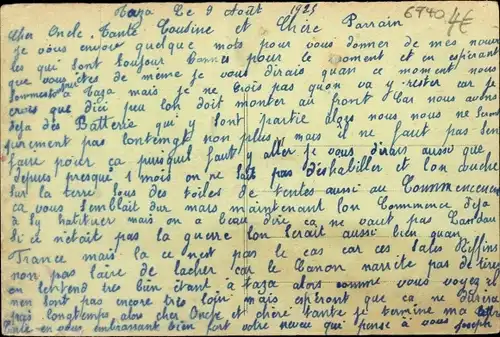 Taza Le 9 Août 1925
6940 4€
Cher Oncle Tante Cousine et Chère Parrain
je vous envoie quelque mots pour vous donner de mes nouv
les qui sont toujour bonnes pour le moment et en espérant
que vous êtes de même je vous dirais quan ce moment nous
sommes à Taza mais je ne crois pas quon va y rester car je
crois que dici peu lon doit monter au front Car nous avons
deja des Batterie qui y sont partie alors nous ne seron
surement pas lontengt non plus mais il ne faut pas sen
faire pour ça puisquil faut y aller je vous dirais aussi que
depuis presque 1 mois on ne fait pas déshabiller et lon couche
sur la terre sous des toiles de tentes aussi au Commencement
ça vous semblait dur mais maintenant lon Commence deja
à sy habituer mais on a beau dire ça ne vaut pas Landau
Si ce nétait pas la guerre lon serait aussi bien quan
France mais la ce nest pas le cas car ces sales Riffins
non pas laire de lacher car le Canon narrite pas de tirer
on lentend tres bien étant à Taza alors comme vous voyez il
nen sont pas encore très loin mais espéront que ca ne durera
pas longtemps alors cher Oncle et chère tante je termine ma lettre
en vous embrassant bien fort votre neveu qui pense à vous Joseph